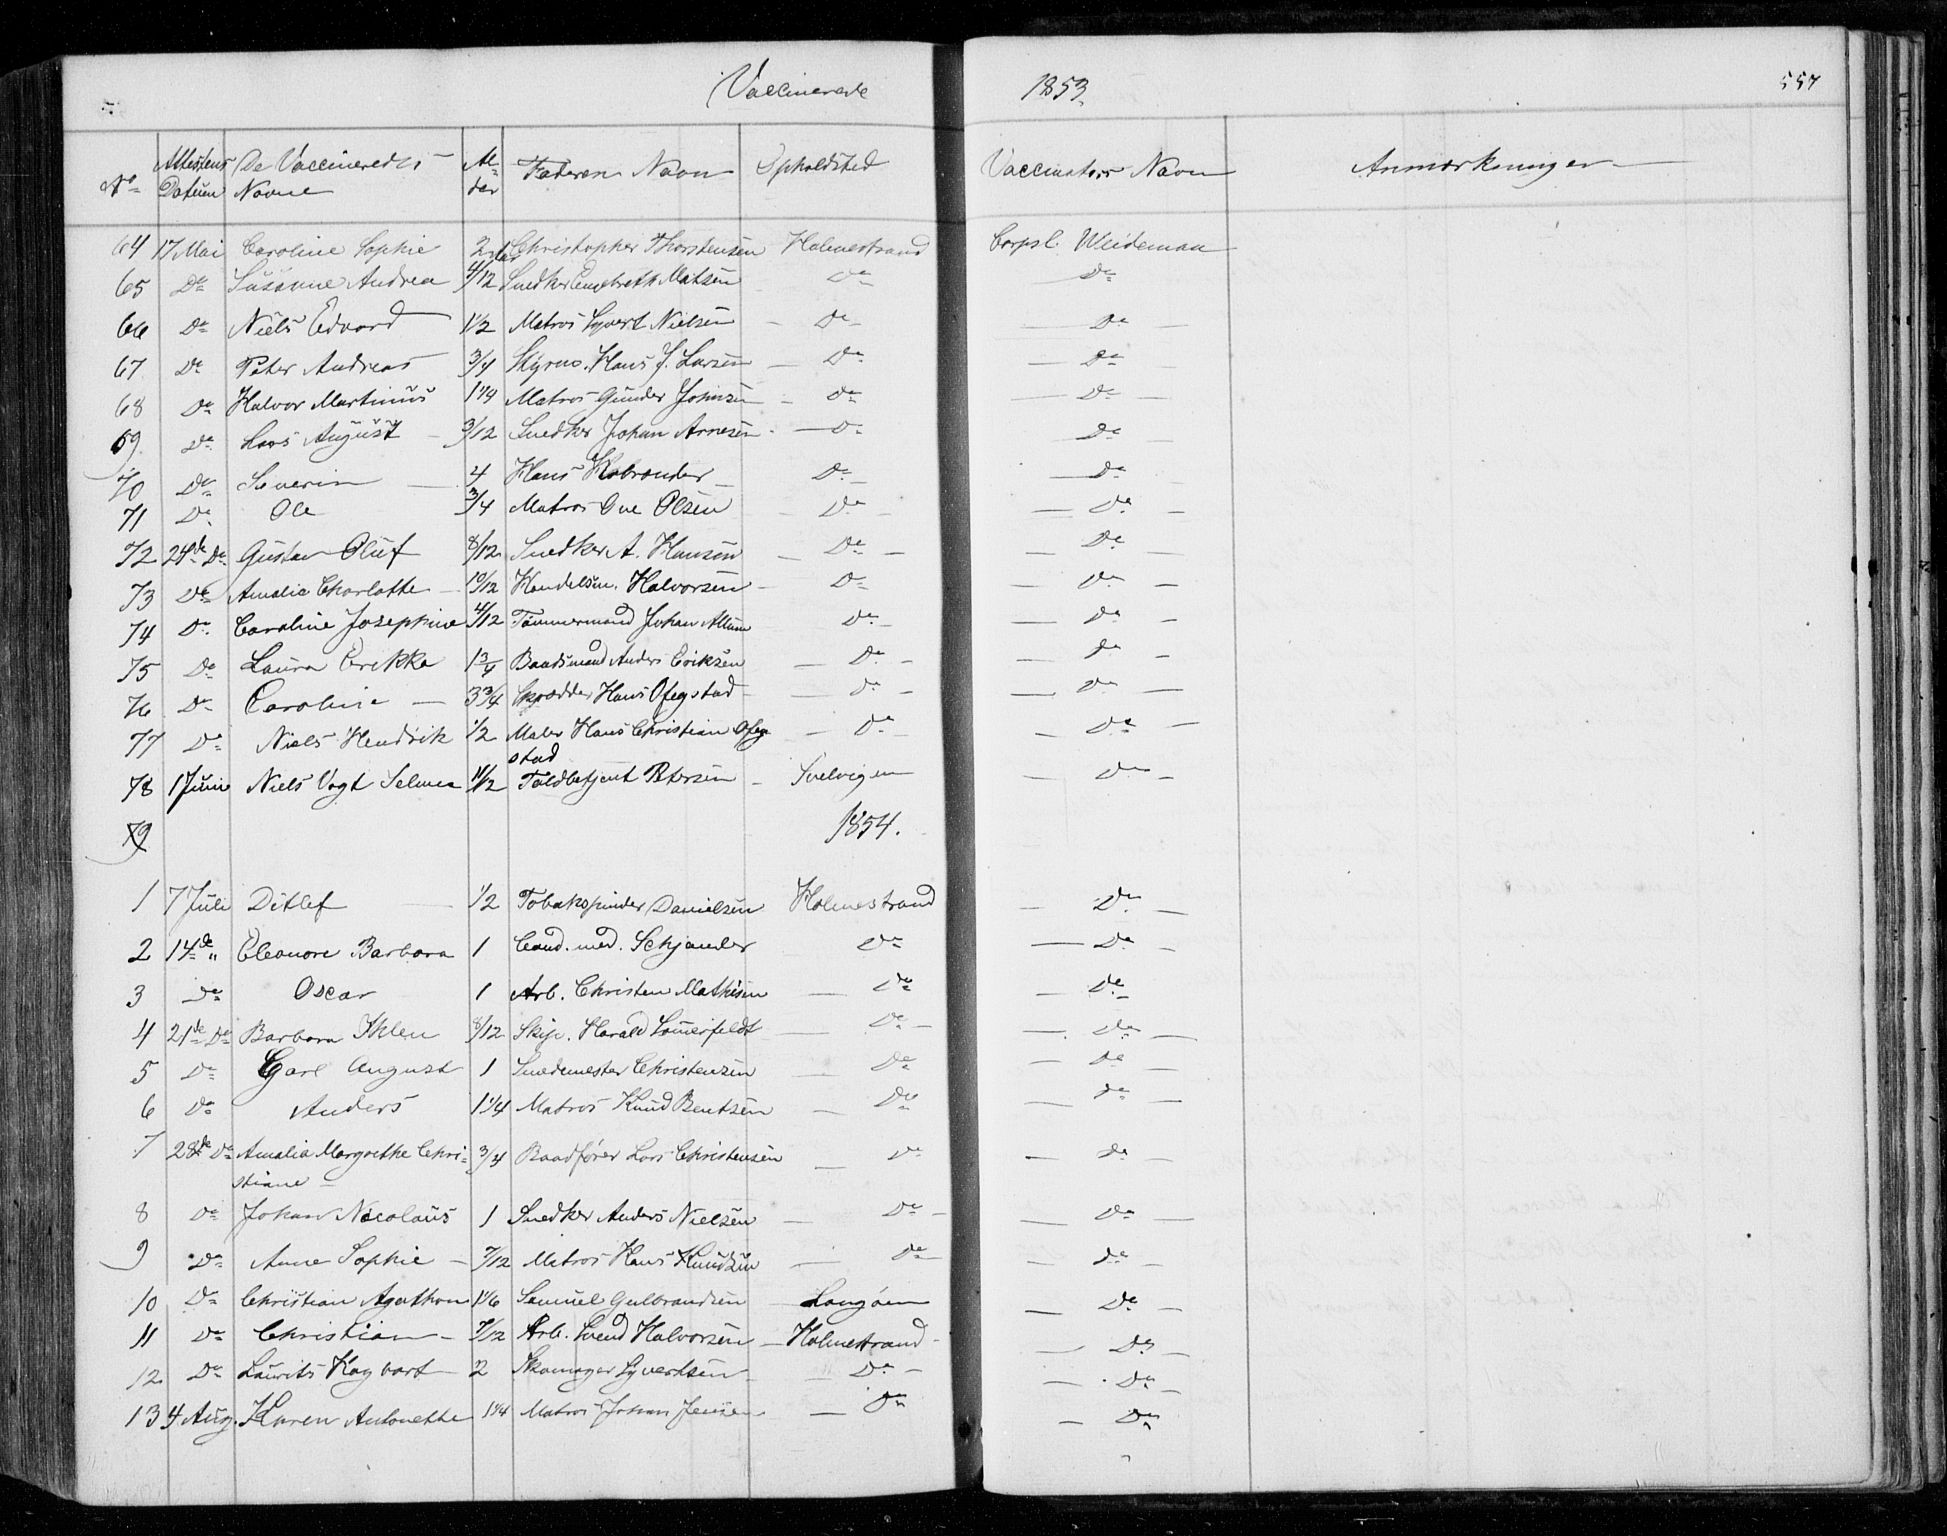 Vaccinerede 1853. 557
No Attestens Datum De Vaccineredes Navne Alder Faderens Navn Opholdsted Vaccinators Navn Anmærkninger
64 17 Mai Caroline Sophie 2 Christopher Thorstensen Holmestrand Corpsl. Weideman
65 Do Susanne Andrea 4/12 Snedker Engebreth Matsen Do Do
66 Do Niels Edvard 1 1/2 Matros Syvert Nielsen Do Do
67 Do Peter Andreas 3/4 Skyrns. Hans J. Larsen Do Do
68 Do Halvor Martinius Matros Gunder Johnsen Do Do
69. Do Lars August 3/12 Snedker Johan Arnesen Do Do
70 Do Severin 4 Hans Do Do
71 Do Ole 3/4 Matros Ove Olsen Do Do
72 24de Do Gustav Oluf 8/12 Snedker A. Hansen Do Do
73 Do Amalia Charlotte 10/12 Handelsm. Halvorsen Do Do
74 Do Caroline Josephine 4/12 Tømmermand Johan Allum Do Do
75 Do Laura Erikka 1 3/4 Baadsmand Anders Eriksen Do Do
76 Do Caroline 3 3/4 Skrædder Hans Ofegstad Do Do
77 Do Niels Hendrik 1/2 Maler Hans Christian Ofeg Do Do
stad
78 1 Juni Niels Vogt Selmer 11/12 Toldbetjent Petersen Svelvigen Do
79 1854.
1 7 Juli Ditlef 1/2 Tobakspinder Danielsen Holmestrand Do
2 14de " Eleonore Barbara 1 Cand. med. Schjander Do Do
3 Do Oscar 1 Arb. Christen Mathisen Do Do
4 21de Do Barbara Ihlen 8/12 Skip. Harald Somerfeldt Do Do
5 Do Carl August 1 Smedemester Christensen Do Do
6 Do Anders 1 1/4 Matros Knud Bentsen Do Do
7 28de Do Amalia Margrethe Chri- 3/4 Baadfører Lars Christensen Do Do
stiane
8 Do Johan Nicolaus 1 Snedker Anders Nielsen Do Do
9 Do Anne Sophie 7/12 Matros Hans Knudsen Do Do
10 Do Christian Agathon 1 1/6 Samuel Gulbrandsen Langøen Do
11 Do Christian 7/12 Arb. Svend Halvorsen Holmestrand Do
12 Do Laurits Ragvart 2 Skomager Syvertsen Do Do
13 4 Aug. Karen Antonette 1 1/4 Matros Johan Jensen Do Do